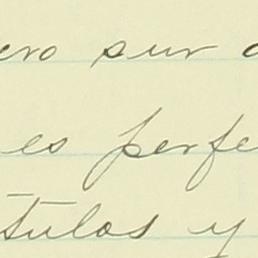 ero sur a
es perfe
tulos y